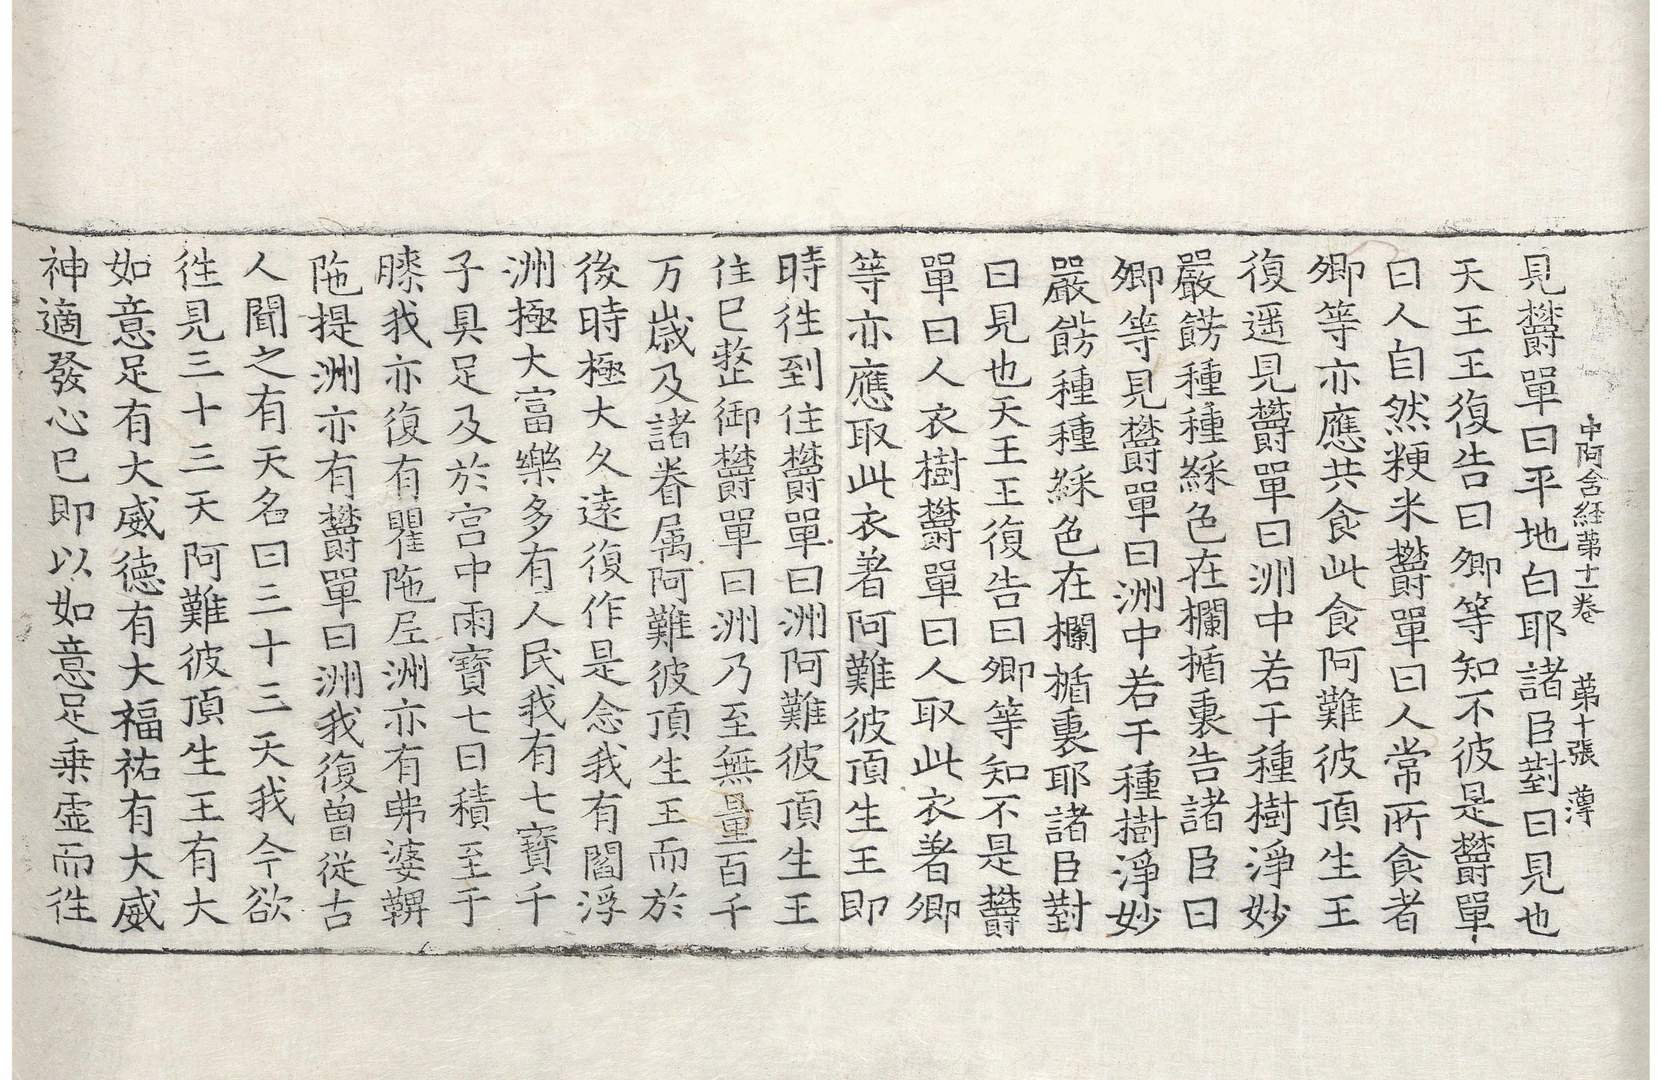 中阿含経苐十一巻　苐十張　薄
見欝單曰平地白耶諸臣對曰見也
天王王復告曰卿等知不彼是欝單
曰人自然粳米欝單曰人常所食者
卿等亦應共食此食阿難彼頂生王
復遥見欝單曰洲中若干種樹淨妙
嚴餝種種綵色在欄楯裏告諸臣曰
卿等見欝單曰洲中若干種樹淨妙
嚴餝種種綵色在欄楯裏耶諸臣對
曰見也天王王復告曰卿等知不是欝
單曰人衣樹欝單曰人取此衣著卿
等亦應取此衣著阿難彼頂生王即
時徃到住欝單曰洲阿難彼頂生王
住已整御欝單曰洲乃至無量百千
万歳及諸眷属阿難彼頂生王而於
後時極大久遠復作是念我有閻浮
洲極大富樂多有人民我有七寶千
子具足及於宫中雨寶七日積至于
膝我亦復有瞿陁尼洲亦有弗婆鞞
陁提洲亦有欝單曰洲我復曽從古
人聞之有天名曰三十三天我今欲
徃見三十三天阿難彼頂生王有大
如意足有大威徳有大福祐有大威
神適發心已即以如意足乗虚而徃